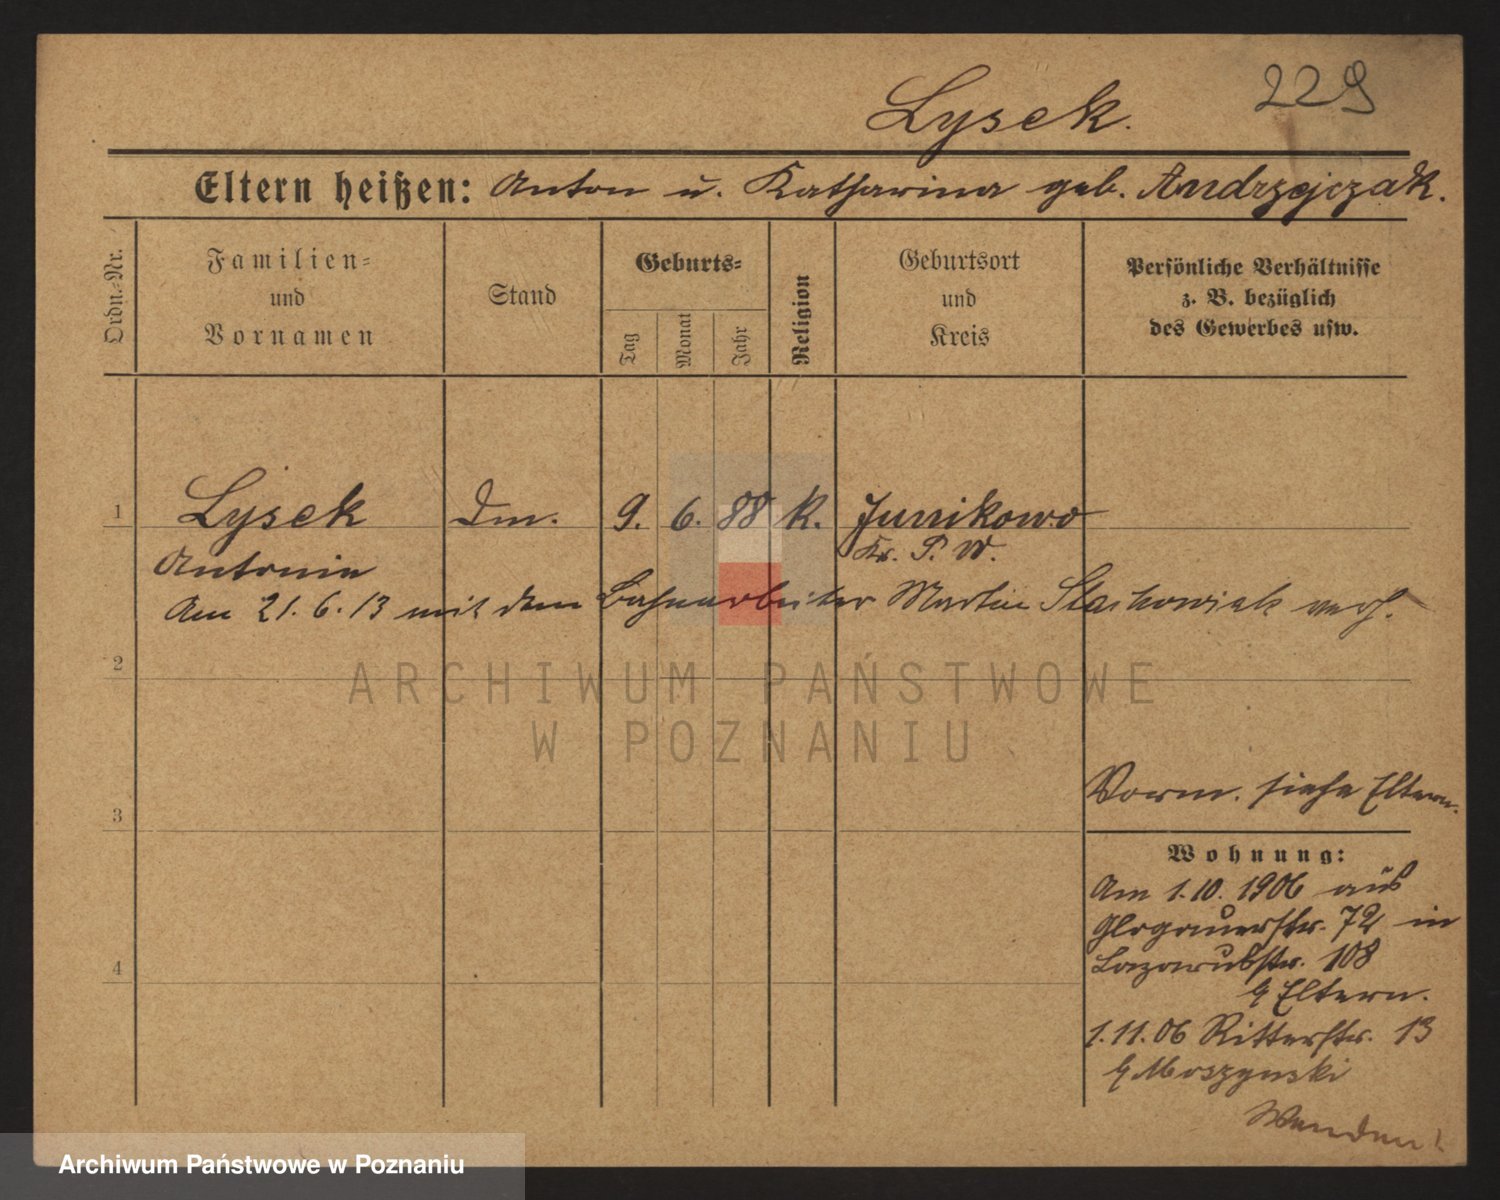 229
Lysek.
Eltern heißen: Anton u. Katharina geb. Andrzejczak.
Ordn.-Nr.
Familien- und Vornamen
Stand
Geburts-
Tag
Monat
Jahr
Religion
Geburtsort und Kreis
Persönliche Verhältnisse z. B. bezüglich des Gewerbes usw.
1 Lysek Dm. 9. 6. 88 K. Junikowo
Antonie Kr. P. W.
Am 21.6.13 mit dem Bahnarbeiter Martin Stachowiak verh.
2
ARCHIWUM PAŃSTWOWE
W POZNANIU
Vorm. siehe Eltern.
3
Wohnung:
Am 1.10.1906 aus
Glogauerstr. 72 in
Lazarusstr. 108
4
b Eltern.
1.11.06 Ritterstr. 13
b Moszynski
Wenden!
Archiwum Państwowe w Poznaniu